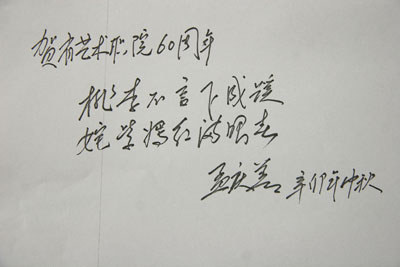 贺省艺术职院60周年
桃李不言下成蹊
姹紫嫣红满眼春
孟庆善 辛卯年中秋